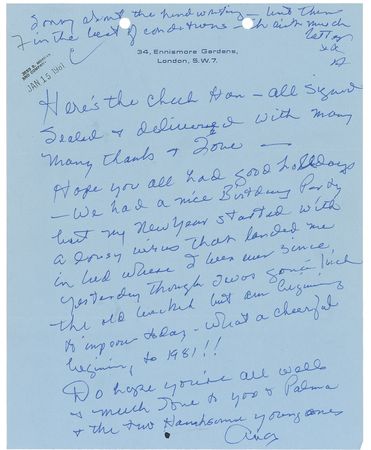 Sorry about the handwriting - but then
I in the best of conditions - it ain't much
better
34, Ennismore Gardens,
London, S.W.7.
JAN 15 1981
Here's the check Hon - all signed
Sealed & delivered with many
many thanks & Love -
Hope you all had good holidays
- We had a nice Birthday Party
but my New Year started with
a lousy virus that landed me
in bed where I been ever since,
yesterday though I was gonna kick
the old bucket but am beginning
to improve today - what a cheerful
beginning to 1981!!
Do hope you're all well
& much love to you & Palma
& the two Handsome young ones
Ava